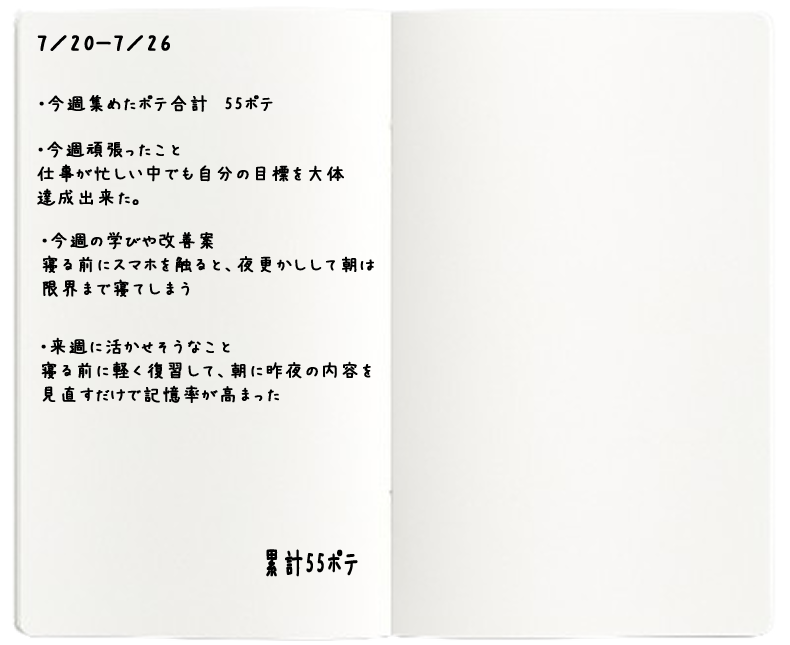 7/20ー7/26
・今週集めたポテ合計　55ポテ
・今週頑張ったこと
仕事が忙しい中でも自分の目標を大体
達成出来た。
・今週の学びや改善案
寝る前にスマホを触ると、夜更かしして朝は
限界まで寝てしまう
・来週に活かせそうなこと
寝る前に軽く復習して、朝に昨夜の内容を
見直すだけで記憶率が高まった
累計55ポテ